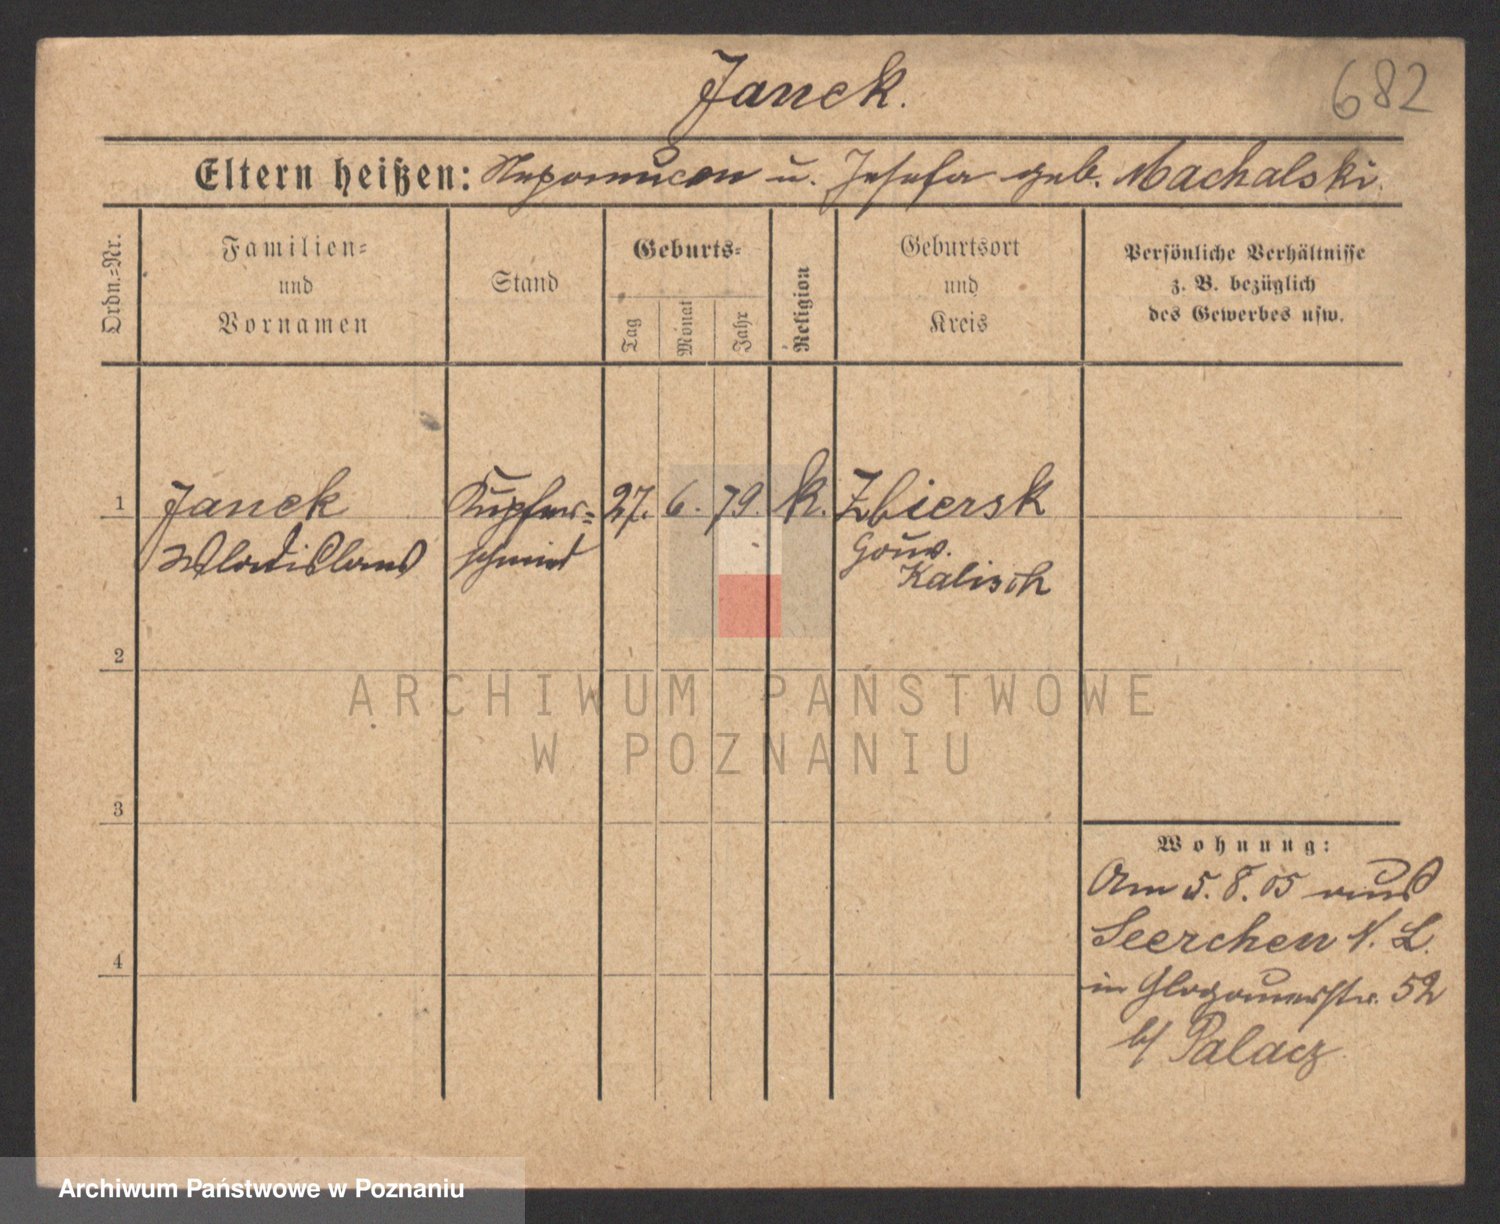 Janek.
682
Eltern heißen: Nepomucen u. Josefa geb. Machalski.
Ordn.-Nr.
Familien-
und
Vornamen
Stand
Geburts-
Tag
Monat
Jahr
Religion
Geburtsort
und
Kreis
Persönliche Verhältnisse
z. B. bezüglich
des Gewerbes usw.
1 Janek Kupfer- 27. 6. 79. k. Zbiersk
Wladislaus schmied Gouv.
Kalisch
2
ARCHIWUM PAŃSTWOWE
W POZNANIU
3
Wohnung:
Am 5.8.05 aus
Seerchen N. L.
4
in Glogauerstr. 52
b/ Palacz
Archiwum Państwowe w Poznaniu